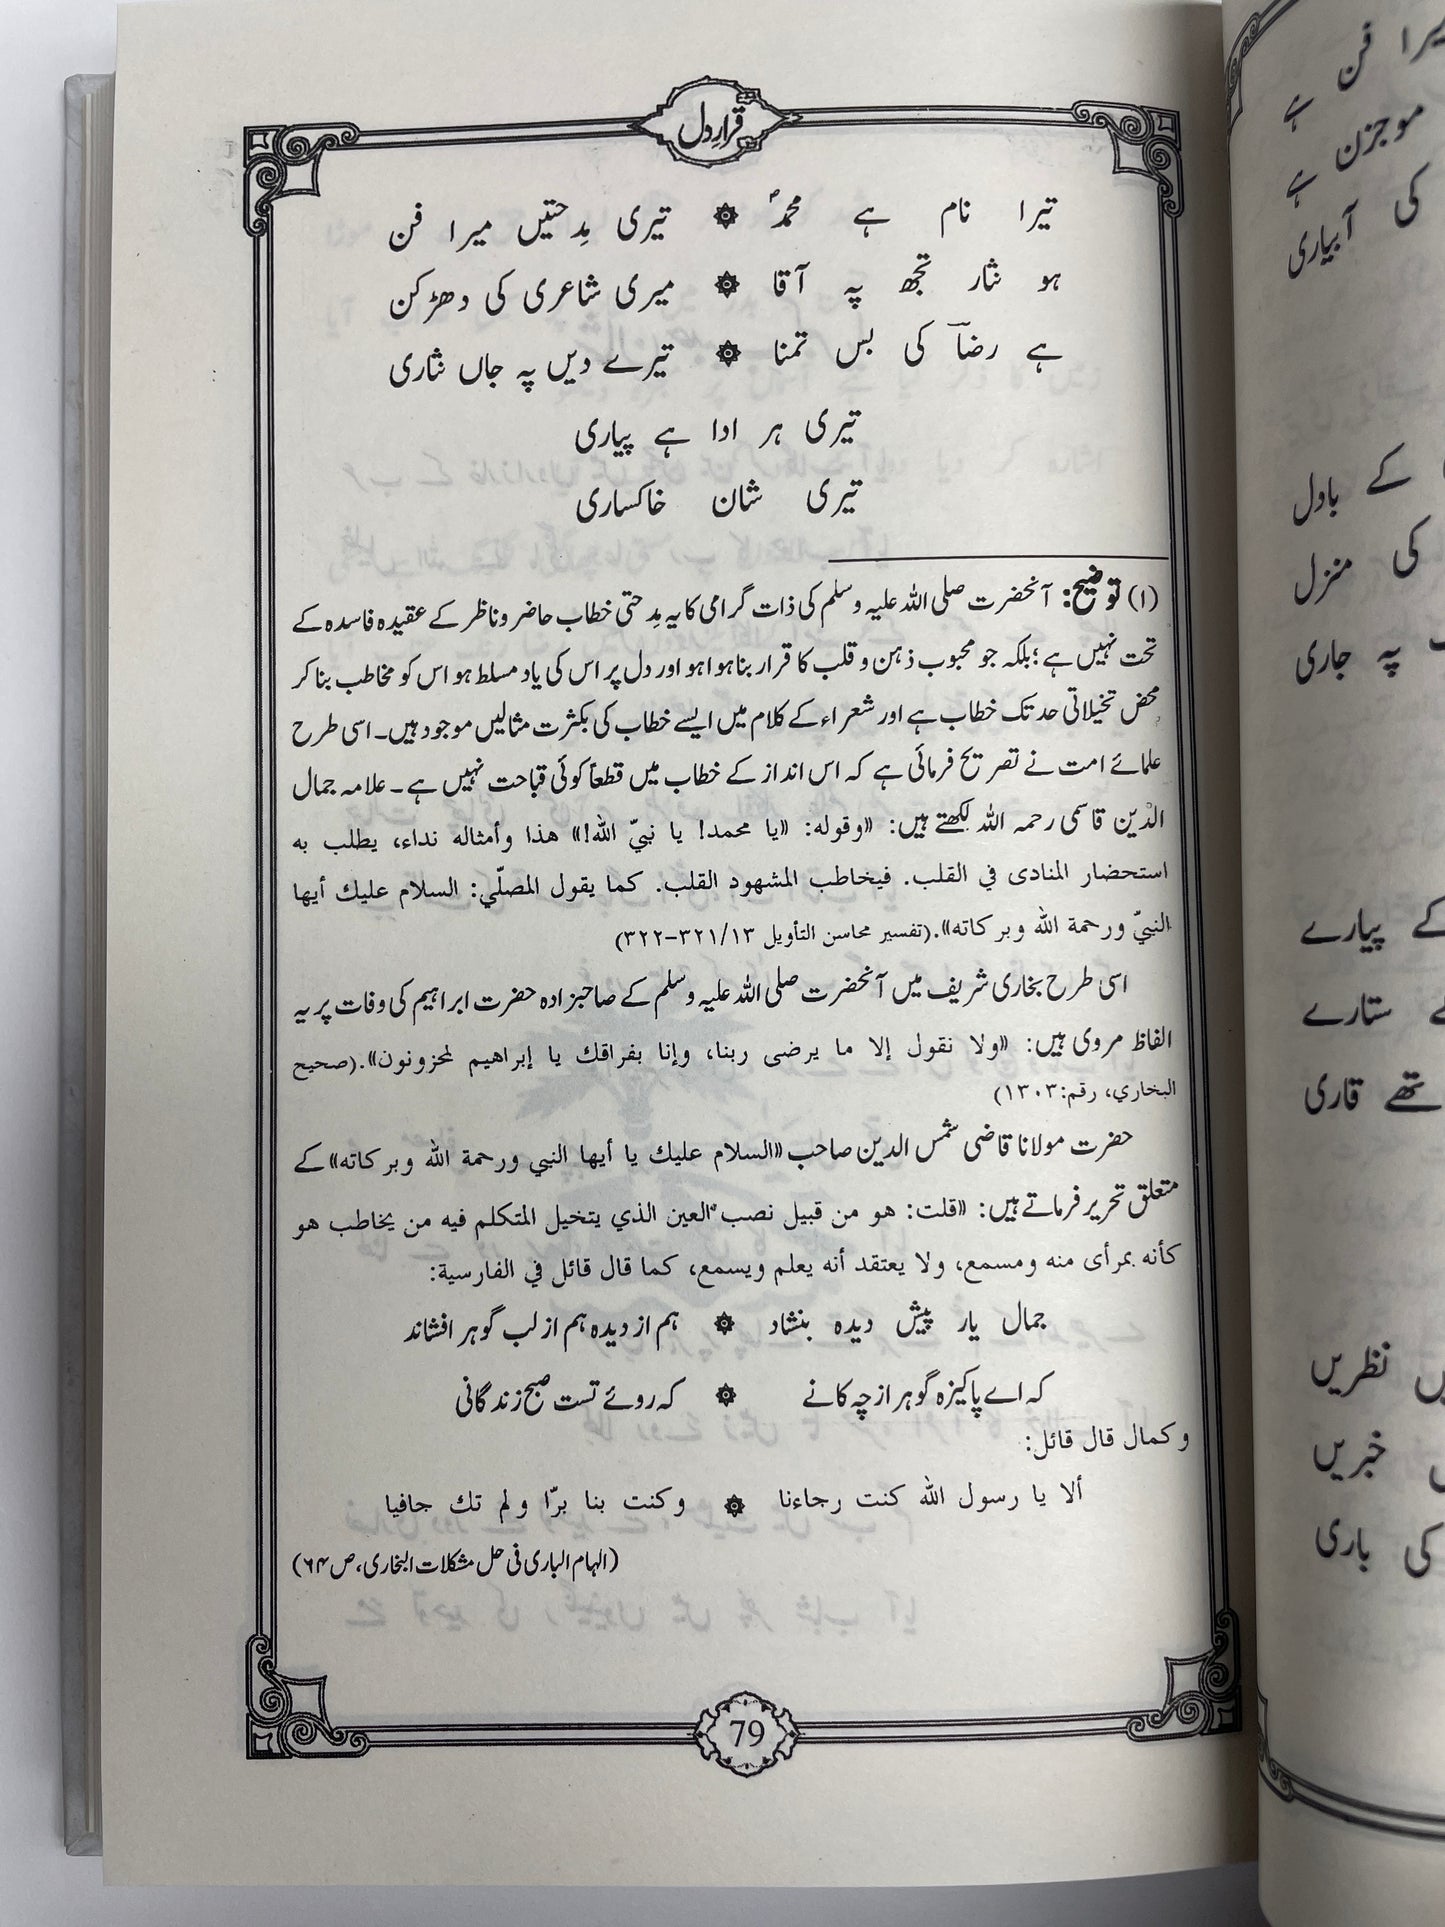 قرارِ دل
تیرا نام ہے محمدؐ ۞ تیری مِدحتیں میرا فن
ہو نثار تجھ پہ آقا ۞ میری شاعری کی دھڑکن
ہے رضاؔ کی بس تمنا ۞ تیرے دیں پہ جاں نثاری
تیری ہر ادا ہے پیاری
تیری شان خاکساری
(۱) توضیح: آنحضرت صلی اللہ علیہ وسلم کی ذات گرامی کا یہ مِدحتی خطاب حاضر و ناظر کے عقیدہ فاسدہ کے
تحت نہیں ہے؛ بلکہ جو محبوب ذہن و قلب کا قرار بنا ہوا ہو اور دل پر اس کی یاد مسلط ہو اس کو مخاطب بنا کر
محض تخیلاتی حد تک خطاب ہے اور شعراء کے کلام میں ایسے خطاب کی بکثرت مثالیں موجود ہیں۔ اسی طرح
علمائے امت نے تصریح فرمائی ہے کہ اس انداز کے خطاب میں قطعاً کوئی قباحت نہیں ہے۔ علامہ جمال
الدّین قاسمی رحمہ اللہ لکھتے ہیں: «وقوله: «يا محمد! يا نبيّ الله!» هذا وأمثاله نداء، يطلب به
استحضار المنادى في القلب. فيخاطب المشهود القلب. كما يقول المصلّي: السلام عليك أيها
النبيّ ورحمة الله وبركاته».(تفسير محاسن التأويل ١٣/٣٢١-٣٢٢)
اسی طرح بخاری شریف میں آنحضرت صلی اللہ علیہ وسلم کے صاحبزادہ حضرت ابراہیم کی وفات پر یہ
الفاظ مروی ہیں: «ولا نقول إلا ما يرضى ربنا، وإنا بفراقك يا إبراهيم لمحزونون».(صحيح
البخاري، رقم:١٣٠٣)
حضرت مولانا قاضی شمس الدین صاحب «السلام عليك يا أيها النبي ورحمة الله وبركاته» کے
متعلق تحریر فرماتے ہیں: «قلت: هو من قبيل نصب العين الذي يتخيل المتكلم فيه من يخاطب هو
كأنه بمرأى منه ومسمع، ولا يعتقد أنه يعلم ويسمع، كما قال قائل في الفارسية:
جمال یار پیش دیدہ بنشاد ۞ ہم از دیدہ ہم از لب گوہر افشاند
کہ اے پاکیزہ گوہر از چہ کانے ۞ کہ روئے تست صبح زندگانی
وكمال قال قائل:
ألا يا رسول الله كنت رجاءنا ۞ وكنت بنا برّا ولم تك جافيا
(الہام الباری فی حل مشکلات البخاری، ص ۶۴)
79
میرا فن ہے
موجزن ہے
کی آبیاری
کے بادل
کی منزل
پہ جاری
کے پیارے
ستارے
تھے قاری
نظریں
خبریں
کی باری